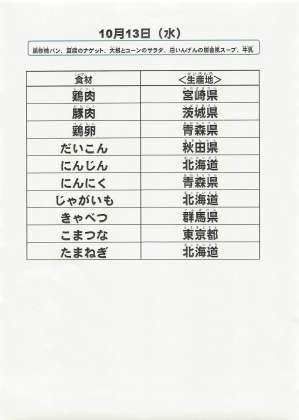 10月13日（水）
豆腐のナゲット、大根とコーンのサラダ、白いんげんの田舎風スープ、牛乳
食材 ＜生産地＞
鶏肉 宮崎県
豚肉 茨城県
鶏卵 青森県
だいこん 秋田県
にんじん 北海道
にんにく 青森県
じゃがいも 北海道
きゃべつ 群馬県
こまつな 東京都
たまねぎ 北海道